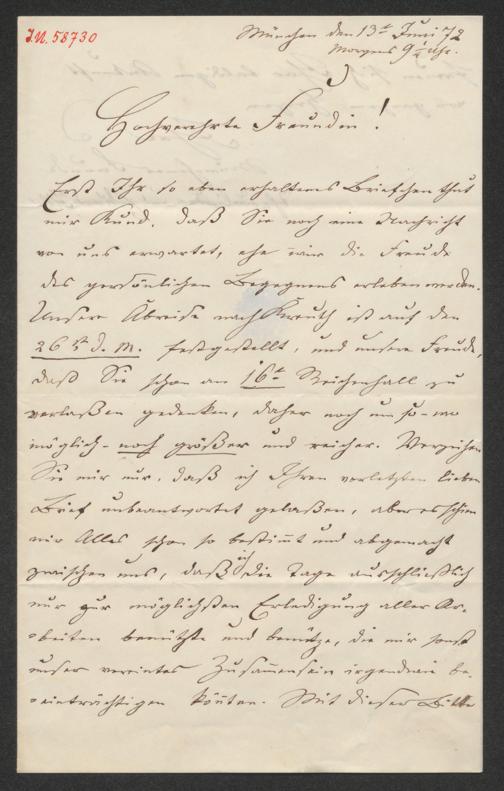 I.N. 58730
München den 13ᵗ Juni 72
Morgens 9½ Uhr.
Hochverehrte Freundin!
Erst Ihr so eben erhaltenes Briefchen thut
mir Kund, daß Sie noch eine Nachricht
von uns erwartet, ehe wir die Freude
des persönlichen Begegnens erleben werden.
Unsere Abreise nach Kreuth ist auf den
26ᵗ d. M. festgestellt, und unsere Freude,
daß Sie schon am 16ᵗ Reichenhall zu
verlaßen gedenken, daher noch um so - wo
möglich - noch größer und reicher. Verzeihen
Sie mir nur, daß ich Ihren vorletzten lieben
Brief unbeantwortet gelaßen, aber es schien
mir Alles schon so bestim̄t und abgemacht
zwischen uns, daß ich die Tage ausschließlich
nur zur möglichsten Erledigung aller Ar-
beiten benützte und benütze, die mir sonst
unser vereintes Zusam̄ensein irgendwie be-
einträchtigen kön̄ten. Mit dieser Bitte